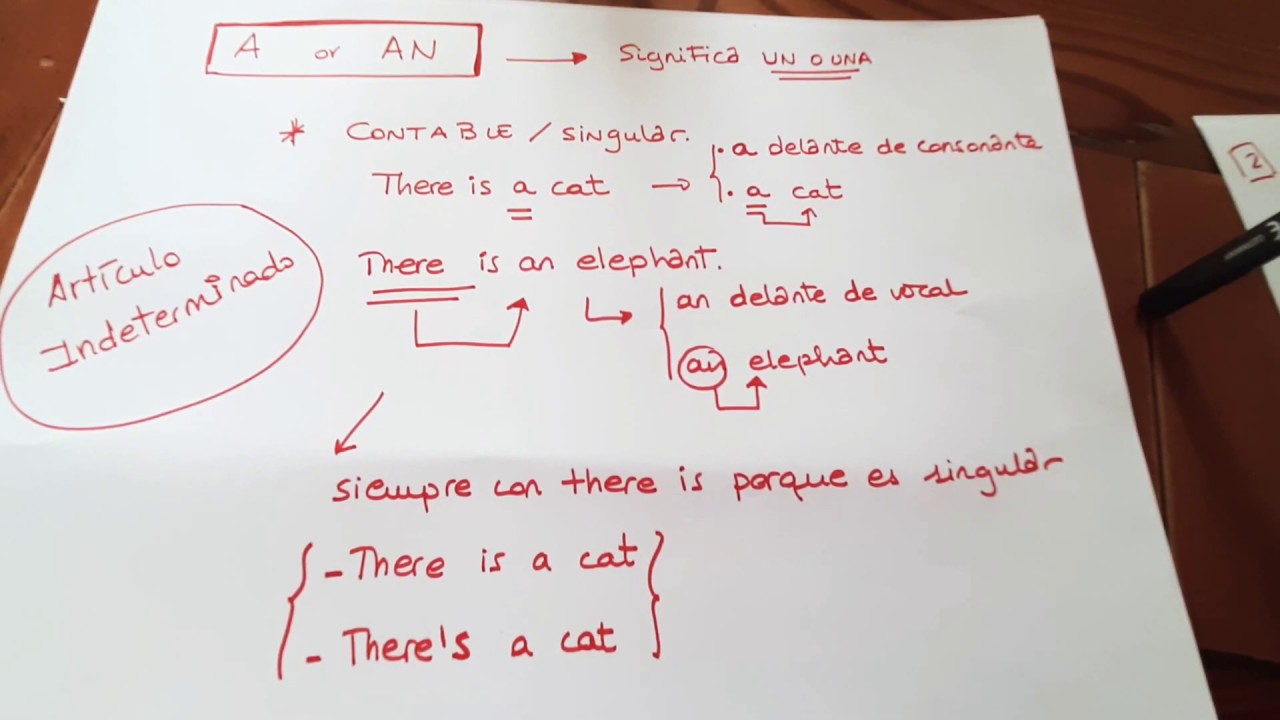 A or AN → Significa UN O UNA
* CONTABLE / singular.
There is a cat → . a delante de consonante
. a cat
Artículo
Indeterminado
There is an elephant.
an delante de vocal
an elephant
siempre con there is porque es singular
- There is a cat
- There's a cat
2